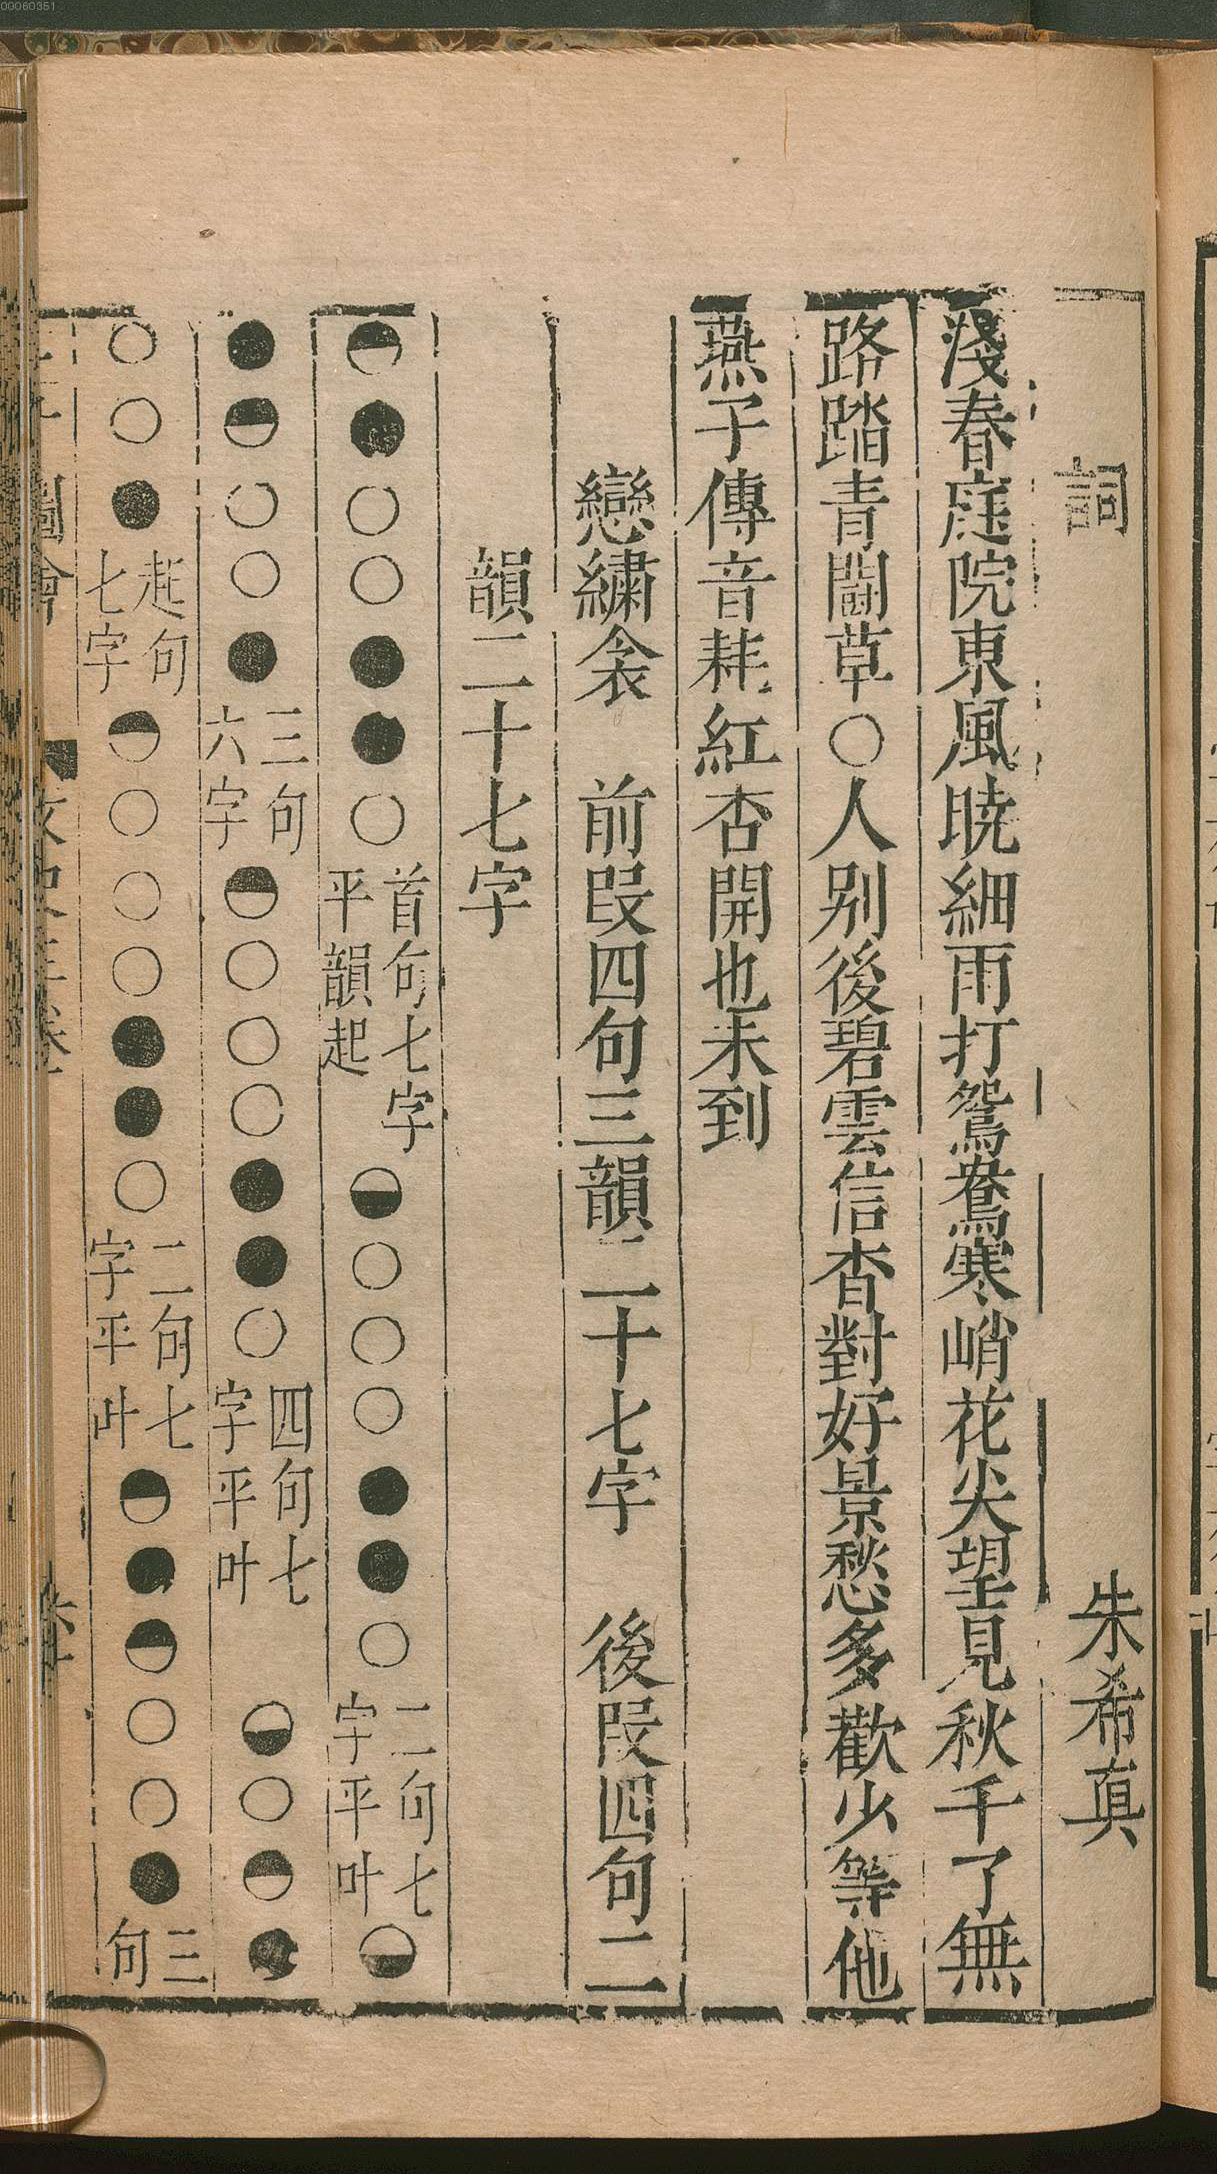 00060351
詞　朱希真
淺春庭院東風曉細雨打鴛鴦寒峭花尖望見秋千了無
路踏青鬪草○人别後碧雲信杳對好景愁多歡少等他
燕子傳音耗紅杏開也未到
戀繡衾　前段四句三韻二十七字　後段四句二
韻二十七字
◓●○○●●○首句七字平韻起◒○○○●●○二句七字平叶◒
●◓○○●三句六字◓○○○●●○四句七字平叶　◒○◓●
○○●起句七字◓○○○●●○二句七字平叶◓●◓○○●三句